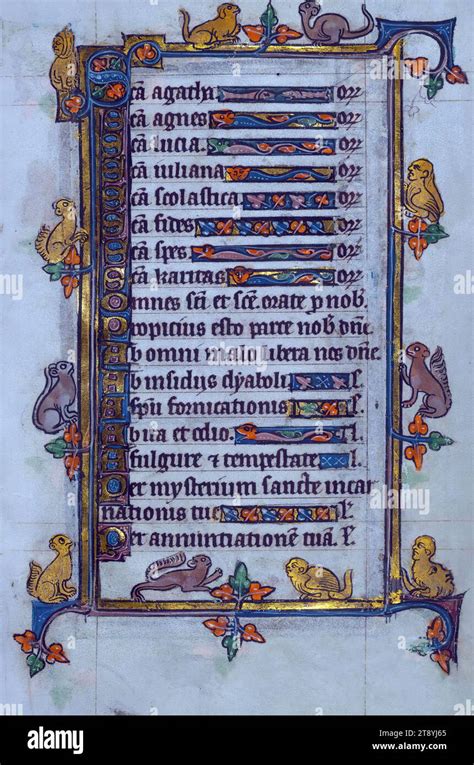 Sca agatha orr
Sca agnes orr
Sca lucia orr
Sca iuliana orr
Sca scolastica orr
Sca fides orr
Sca spes orr
Sca karitas orr
Omnes sci et sce orate p nob.
Propicius esto parce nob dne.
Ab omni malo libera nos dne.
Ab insidiis dyaboli l.
A spu fornicationis l.
Ab ira et odio l.
A fulgure & tempestate l.
Per mysterium sancte incar
nationis tue l.
Per annuntiatione tua l.
alamy
Image ID: 2T8YJ65
www.alamy.com